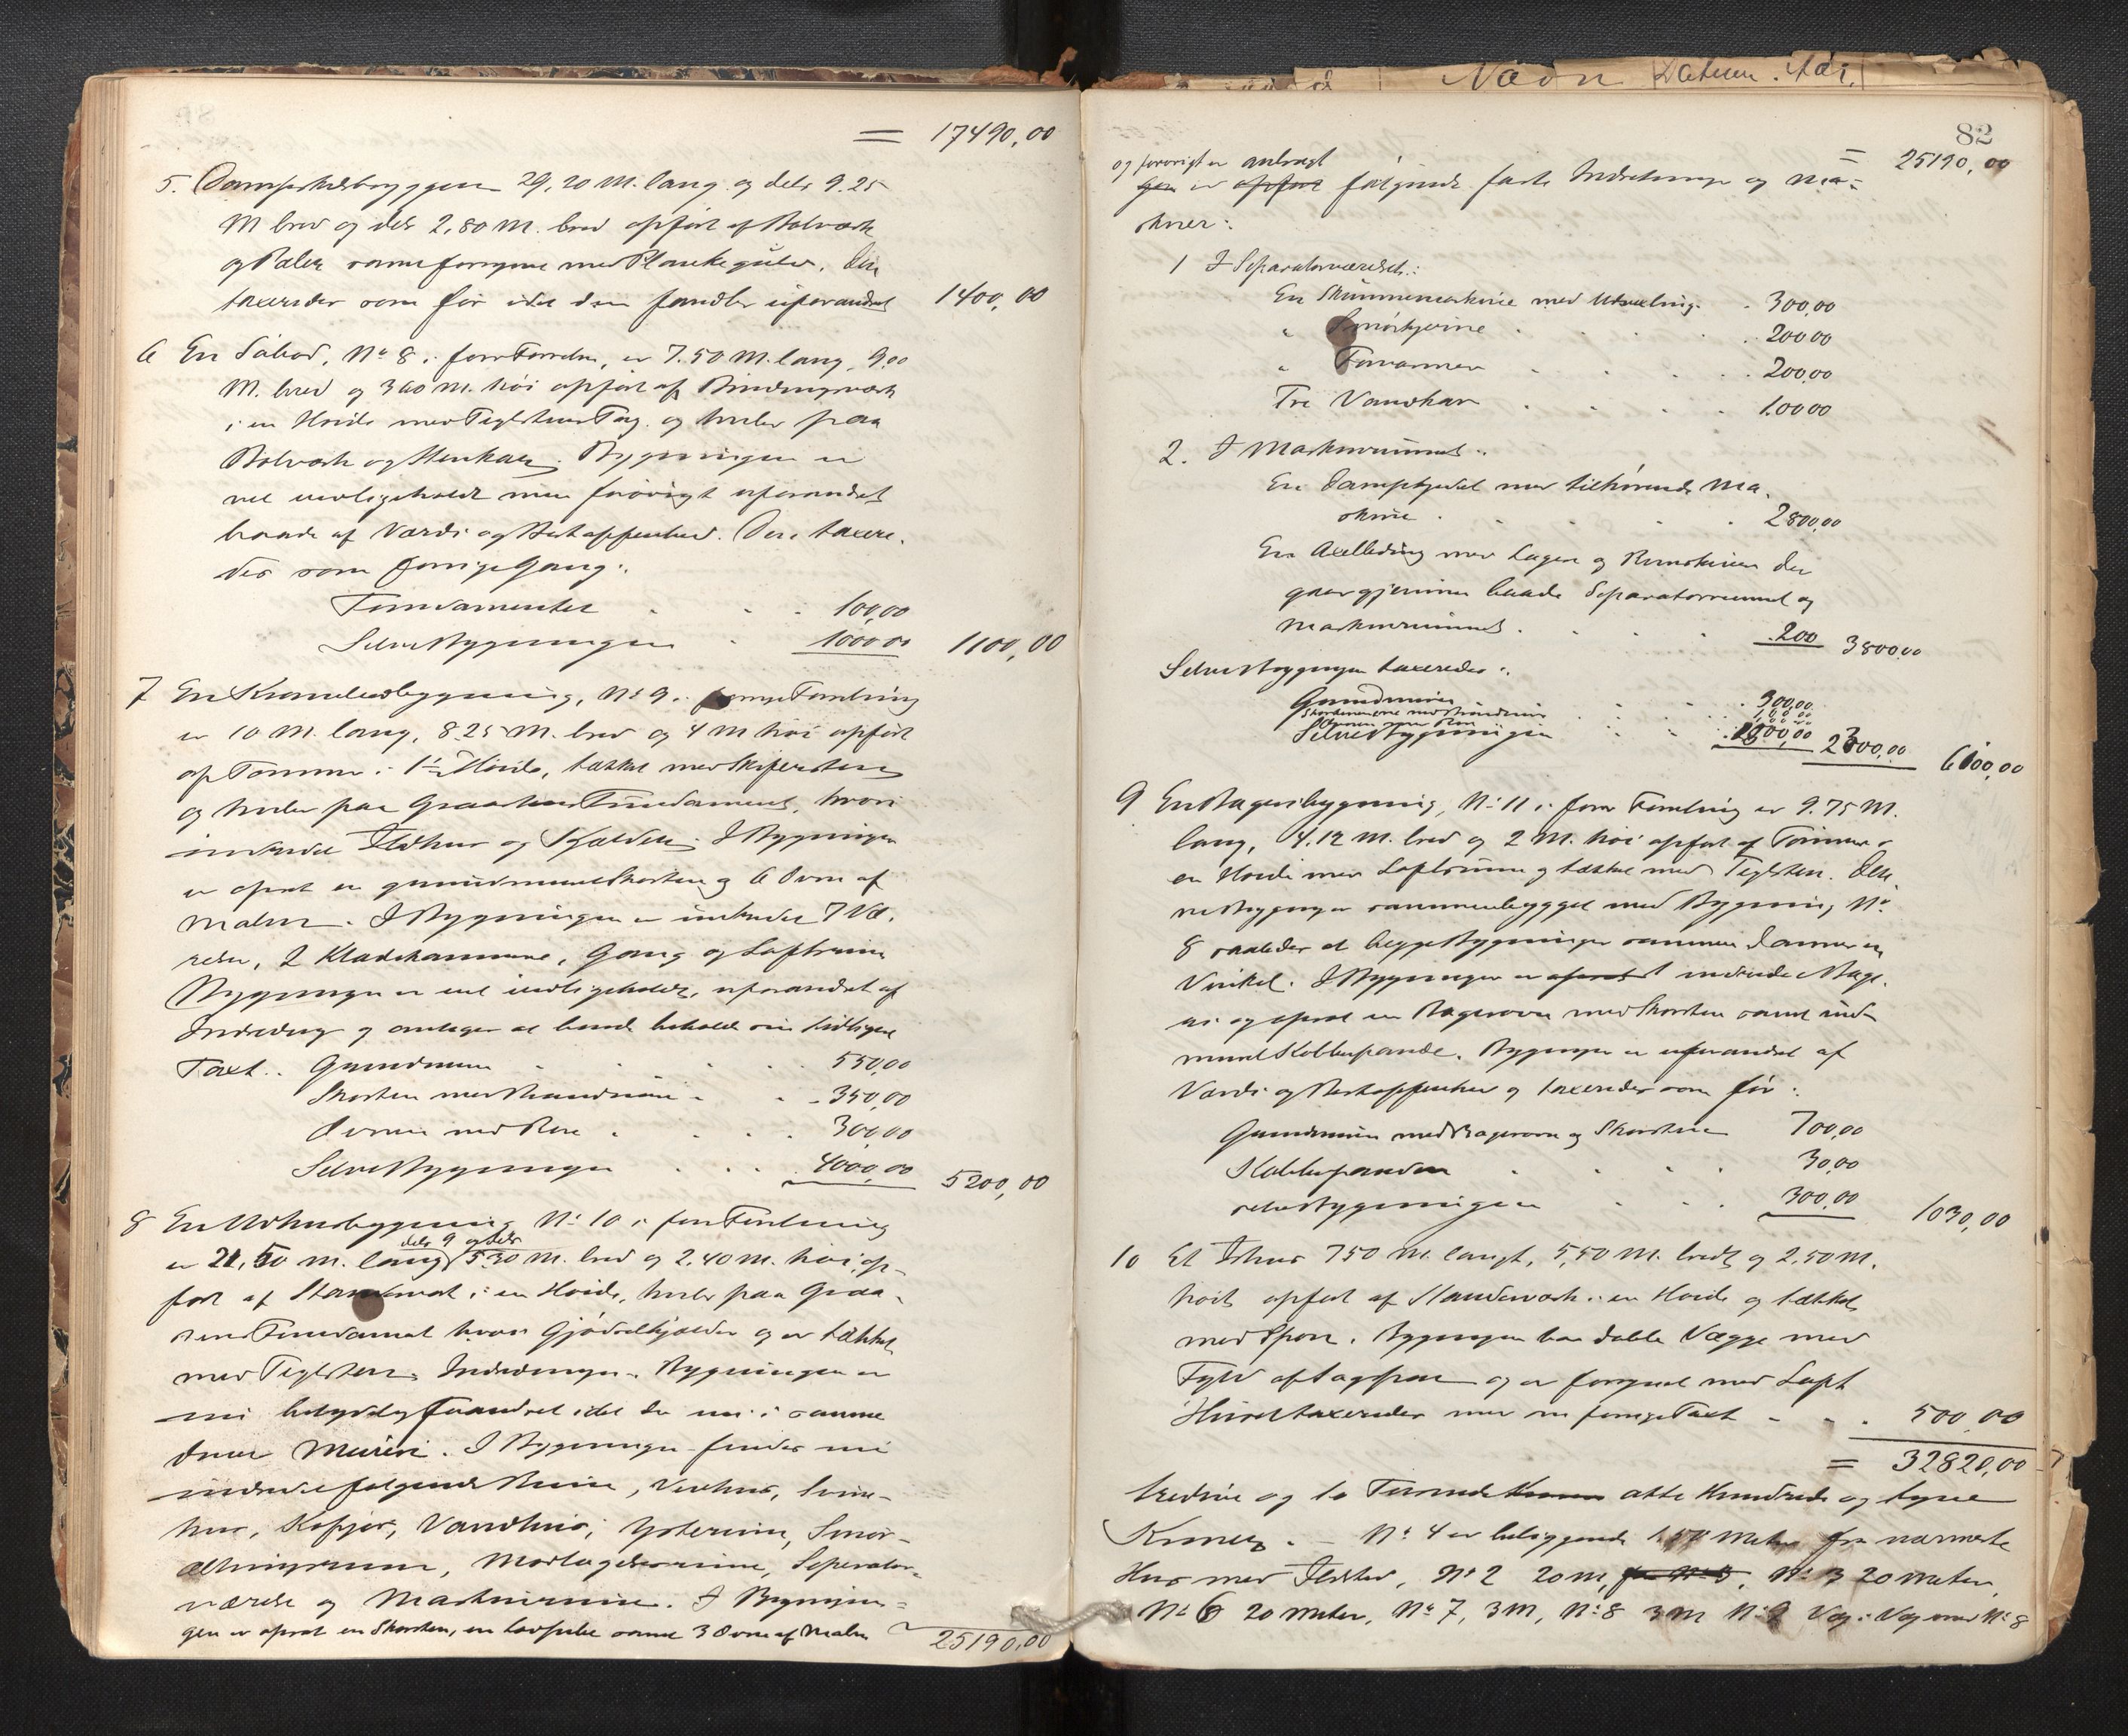 = 17490,00
5. Dampskibsbryggen 29,20 M. lang og dels 9.25
M bred og dels 2,80 M. bred opført af Bolværk
og Pæler samt forsynet med Plankegulv. Den
taxeredes som før idet den fandtes uforandret 1400,00
6 En Søbod, No 8 i forr Forretn, er 7.50 M. lang, 9,00
M. bred og 3,60 M. høi opført af Bindingsværk
i en Høide med Teglstens Tag og hviler paa
Bolværk og Stenkar. Bygningen er
vel vedligeholdt men forøvrigt uforandret
baade af Værdi og Beskaffenhed. Den taxere-
des som forrige Gang:
Fundamentet . . . 100,00
Selve Bygningen . 1000,00 1100,00
7 En Krambodbygning, No 9 i forrige Forretning
er 10 M. lang, 8.25 M. bred og 4 M høi opført
af Tømmer i 1 Høide, tækket med Skifersten
og hviler paa Graastens Fundament, hvori
indredet Ildhus og Kjælder. I Bygningen
er opsat en grundmuret Skorsten og 6 Ovne af
Malm. I Bygningen er indredet 7 Væ-
relser, 2 Klædekammere, Gang og Loftsrum
Bygningen er vel vedligeholdt, uforandret af
Indredning og antages at kunde beholde sin tidligere
Taxt: Grundmuren . . . . 550,00
Skorsten med Brandmur . . . 350,00
Ovnene med Rør . . . . 300,00
Selve Bygningen . . . 4000,00 5200,00
8 En Udhusbygning No 10 i forr Forretning
dels 9 og dels
er 21,50 M. lang 5.30 M. bred og 2,40 M. høi, op-
ført af Standværk i en Høide, hviler paa Graa-
stens Fundament hvori Gjødselkjælder og er tækket
med Teglsten. Indredningen. Bygningen er
nu betydelig forandret idet der nu i samme
drives Meieri. I Bygningen findes nu
indredet følgende Rum, Vedhus, Svine-
hus, Kofjøs, Vandhus, Ysterum, Smør-
æltningsrum, Modtagelsesrum, Seperator-
værelse og Maskinrum. I Bygnin-
gen er opsat en Skorsten, en samt 3 Ovne af Malm 25190,00
82
= 25190,00
og forøvrigt er anbragt
gen er opført følgende faste Indretninger og Ma-
skiner:
1 I Separatorværelset:
En Skummemaskine med Udvexling . . 300,00
" Smørkjerne . . . . 200,00
" Forvarmer . . . . 200,00
Tre Vandkar . . . . 100,00
2. I Maskinrummet:
En Dampkjedel med tilhørende Ma-
skine . . . . 2800,00
En Axelledning med Lagere og Remskiver der
gaar gjennem baade Separatorrummet og
Maskinrummet . . . . 200 3800,00
Selve Bygningen taxeredes:
Grundmuren . . . 300,00
Skorstenene med Brandmur . . . 100,00
Ovnene med Rør
Selve Bygningen . . 2300,00 6100,00
9 En Bageribygning, No 11 i forr Forretning er 9.75 M.
lang, 4.12 M. bred og 2 M. høi opført af Tømmer i
en Høide med Loftsrum og tækket med Teglsten. Den-
ne Bygning er sammenbygget med Bygning No
8 saaledes at begge Bygninger sammen danner en
Vinkel. I Bygningen er opsat indredet Bage-
ri og opsat en Bagerovn med Skorsten samt ind-
muret Kobberpande. Bygningen er uforandret af
Værdi og Beskaffenhed og taxeredes som før:
Grundmuren med Bagerovn og Skorsten 700,00
Kobberpanden . . . . 30,00
selve Bygningen . . . 300,00 1030,00
10 Et Ishus 7.50 M. langt, 5,50 M. bredt og 2,50 M.
høit opført af Standværk i en Høide og tækket
med Spon. Bygningen har doble Vægge med
Fyld af Sagspon og er forsynet med Loft
Huset taxeredes med sin forrige Taxt . . . 500,00
= 32820,00
tredive og to Tusinde Kroner otte Hundrede og tyve
Kroner. — No 4 er beliggende 150 Meter fra nærmeste
Hus med Ildsted, No 2 20 M, fra No 5, No 3 20 Meter,
No 6 20 Meter, No 7, 3 M, No 8 3 M No 9 Væg i Væg med No 8
Navn Datum. Aar.